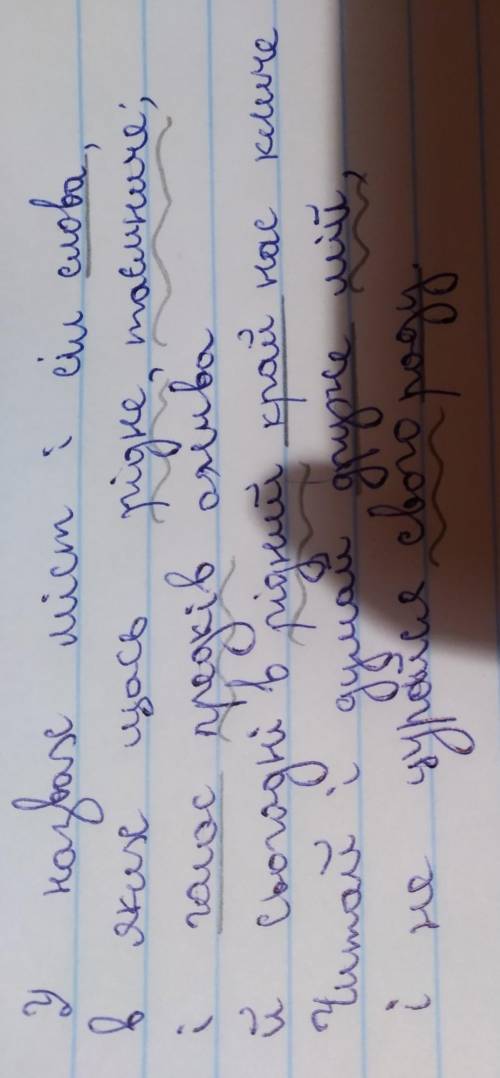 У назвах міст і сіл слова,
в яких щось рідне, таємниче;
і голос предків ожива
й сьогодні в рідний край нас кличе
Читай і думай друже мій,
і не цурайся свого роду